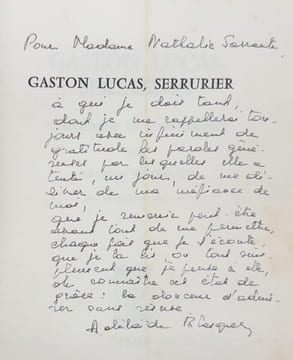 Pour Madame Nathalie Sarraute,
GASTON LUCAS, SERRURIER
à qui je dois tant,
dont je me rappellerai tou-
jours avec infiniment de
gratitude les paroles géné-
reuses par lesquelles elle a
tenté, un jour, de me dé-
livrer de ma méfiance de
moi,
que je remercie peut-être
avant tout de me permettre,
chaque fois que je l'écoute,
que je la lis ou tout sim-
plement que je pense à elle,
de connaître cet état de
grâce : la douceur d'admi-
rer sans réserve
Adélaïde Blasquez